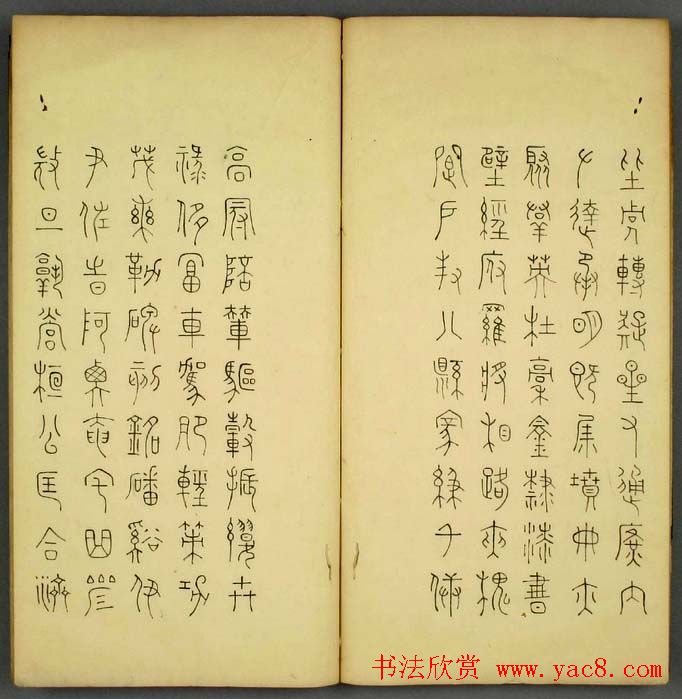 陛弁轉疑星右通廣内
左達承明既集墳典亦
聚羣英杜稾鍾隸漆書
壁經府羅將相路夾槐
卿户封八縣家給千兵
高冠陪輦驅轂振纓世
祿侈富車駕肥輕策功
茂實勒碑刻銘磻谿伊
尹佐時阿衡奄宅曲阜
微旦孰營桓公匡合濟
书法欣赏 www.yac8.com